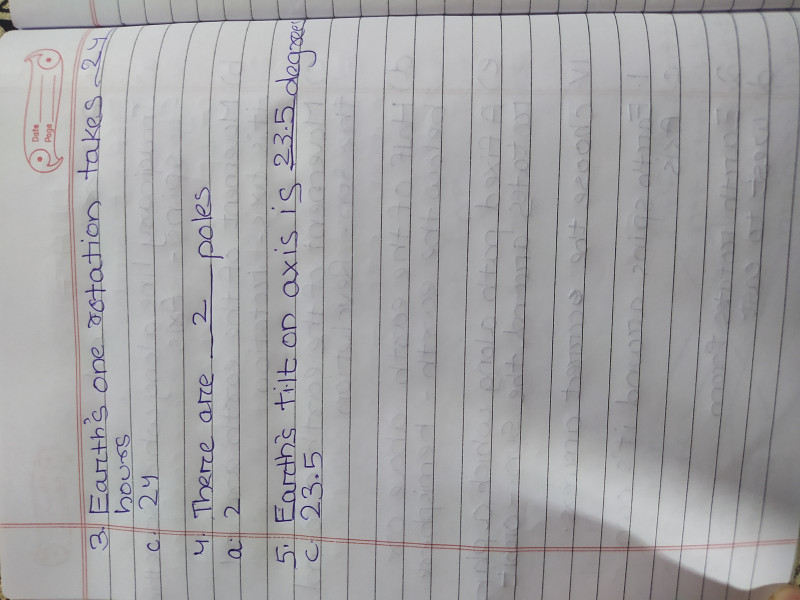 Date
Page
3. Earth's one rotation takes 24
hours
c. 24
4. There are 2 poles
a. 2
5. Earth's tilt on axis is 23.5 degrees
c. 23.5